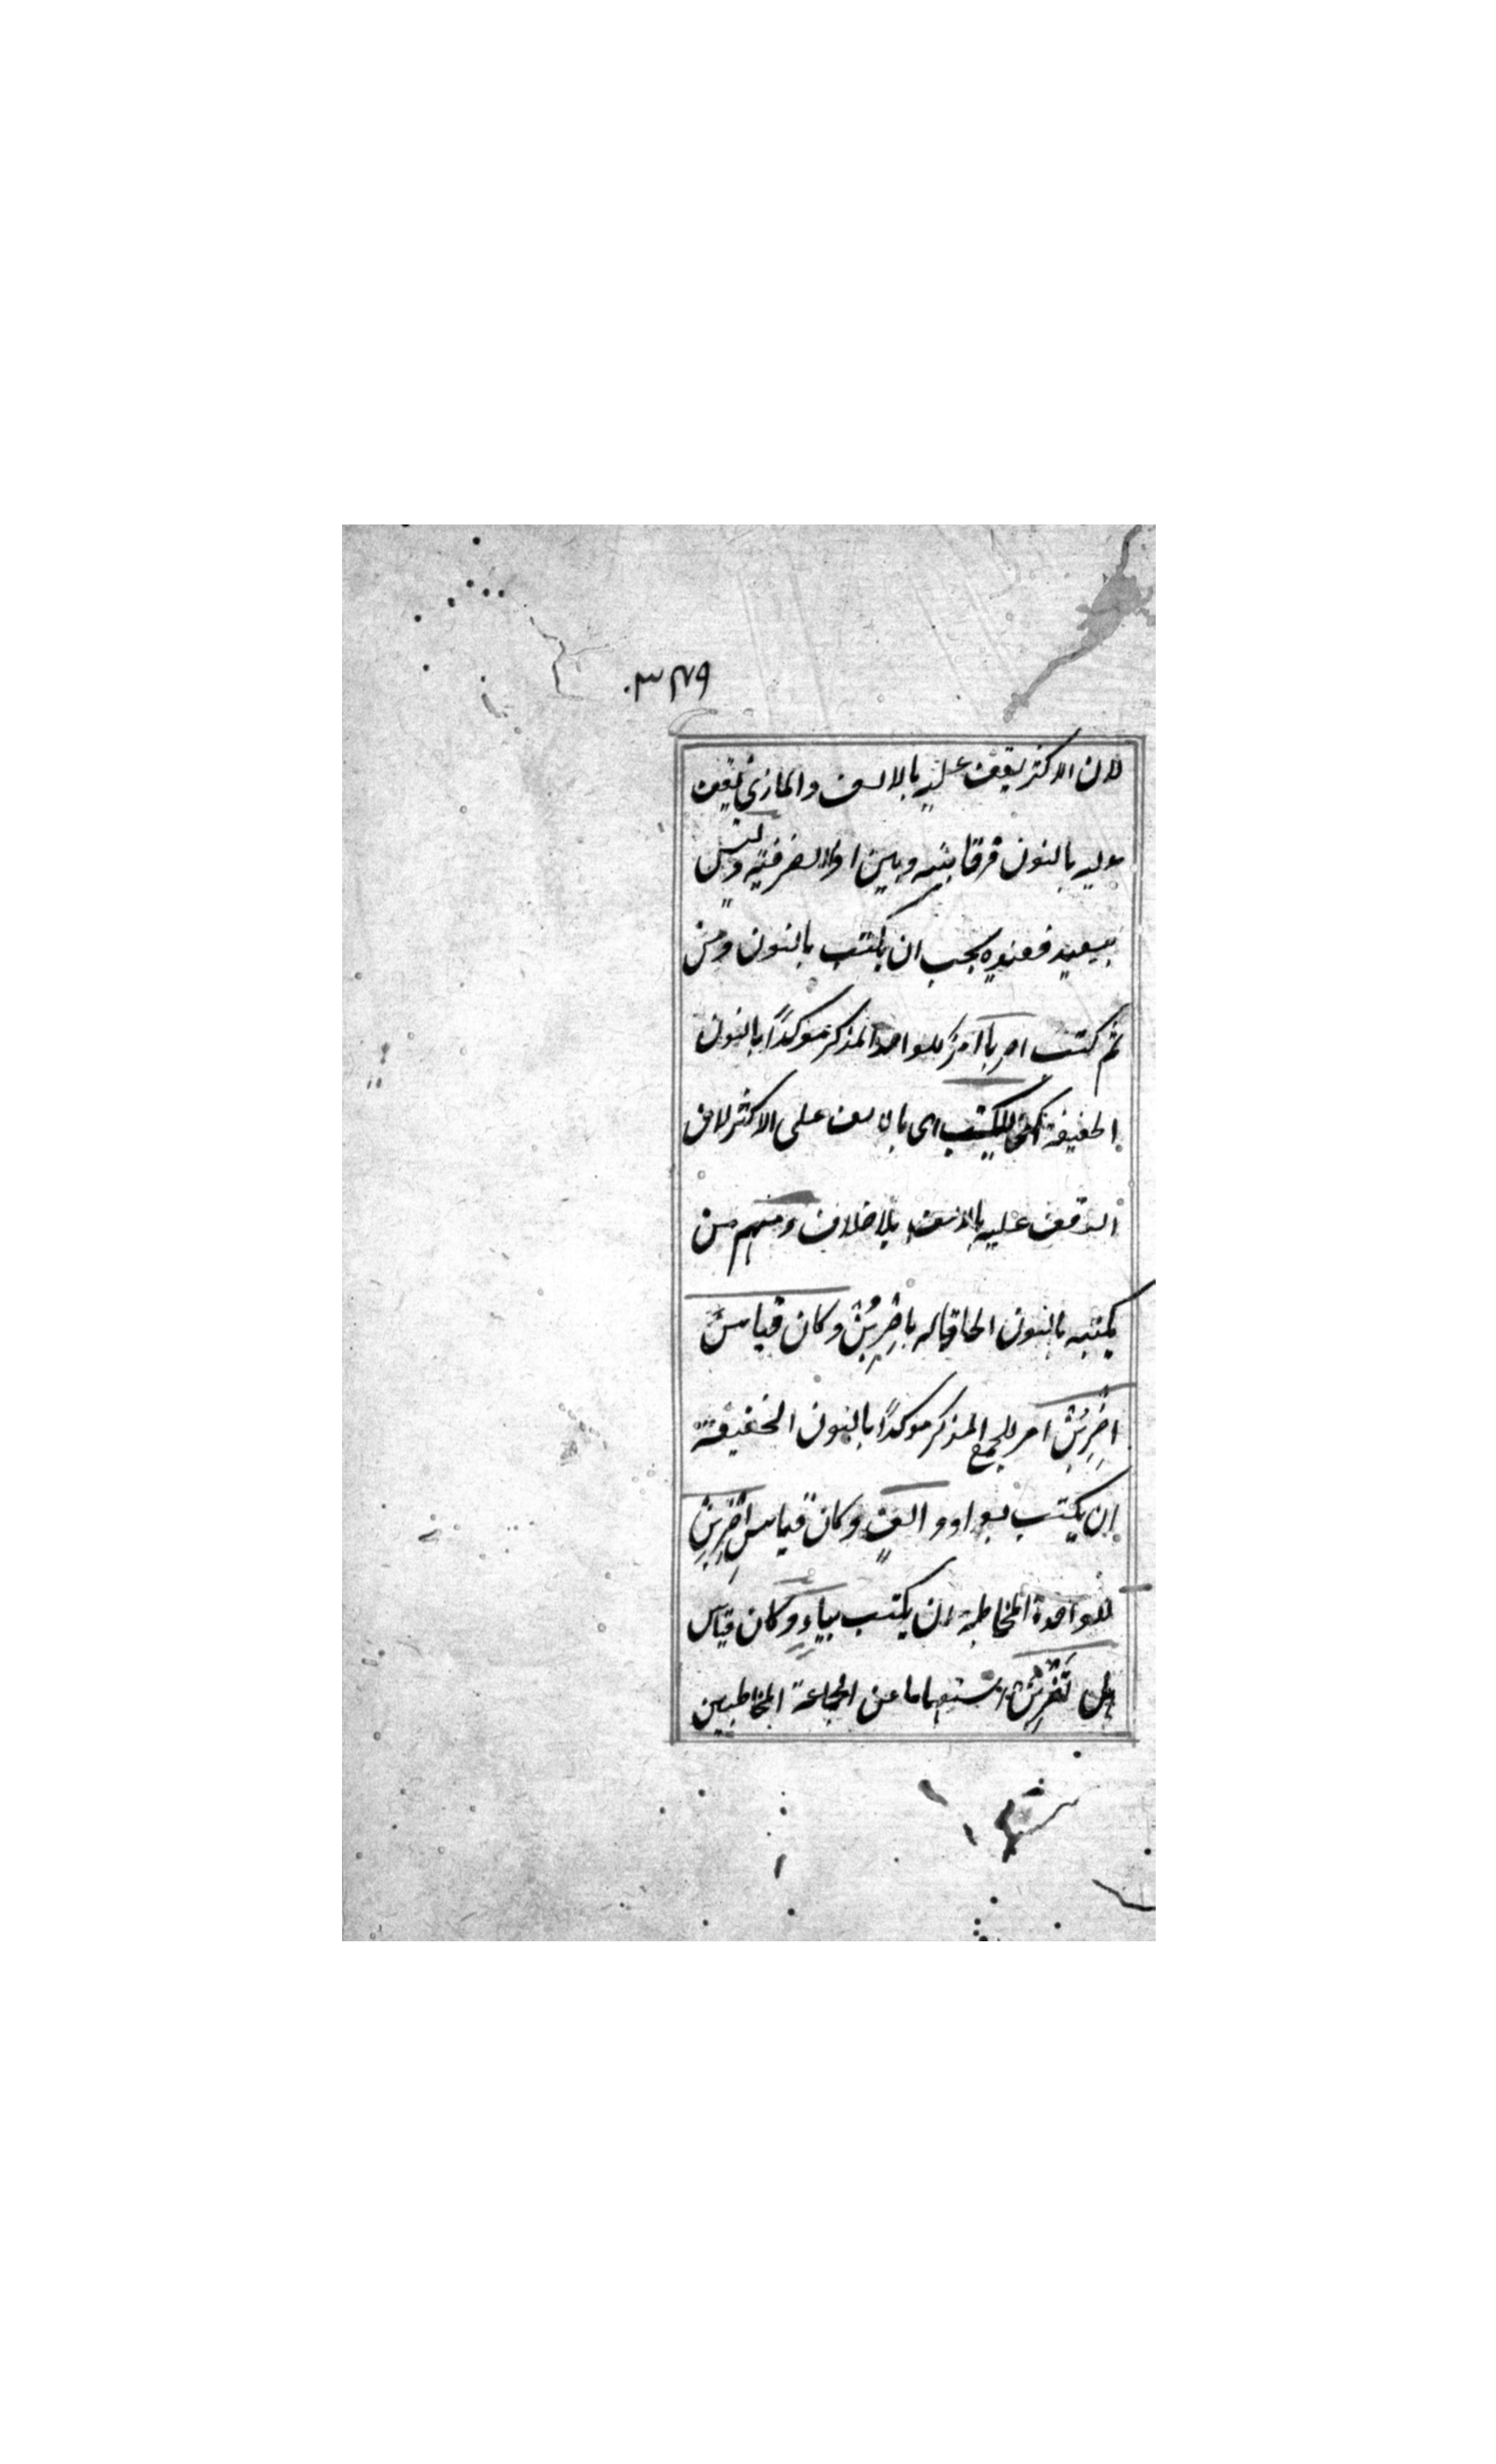 ٣٣٧٩
لان الاكثر يقف عليه بالالف والمازني يقف
عليه بالنون فرقا بينه وبين اذا الظرفية وليس
ببعيد فعنده يجب ان يكتب بالنون ومن
ثم كتب اضربا امر للواحد المذكر موكدًا بالنون
الخفيفة اى بالالف على الاكثر لان
الوقف عليه بالالف بلا خلاف ومنهم من
يكتبه بالنون الحاقا له باضربن وكان قياس
اضربن امر للجمع المذكر موكدًا بالنون الخفيفة
ان يكتب بواو والف وكان قياس اضربن
للواحدة المخاطبة ان يكتب بياء وكان قياس
هل تضربن استفهاما عن الجماعة المخاطبين